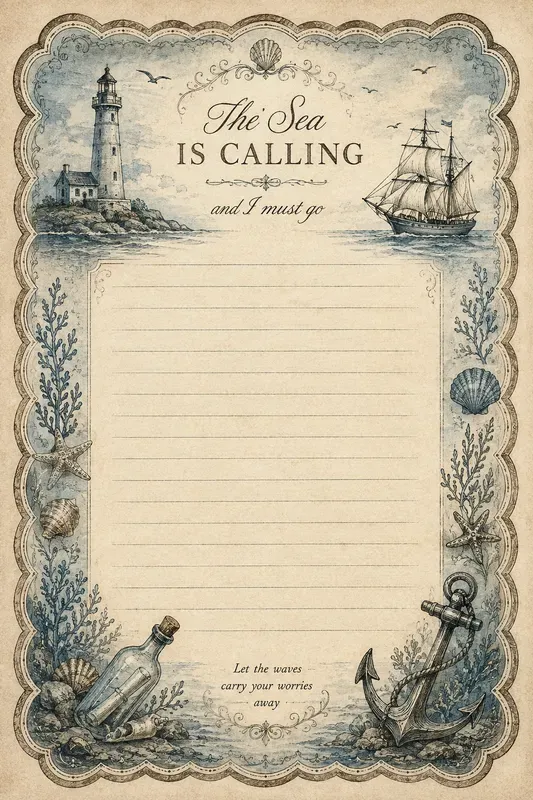 The Sea
IS CALLING
and I must go
Let the waves
carry your worries
away